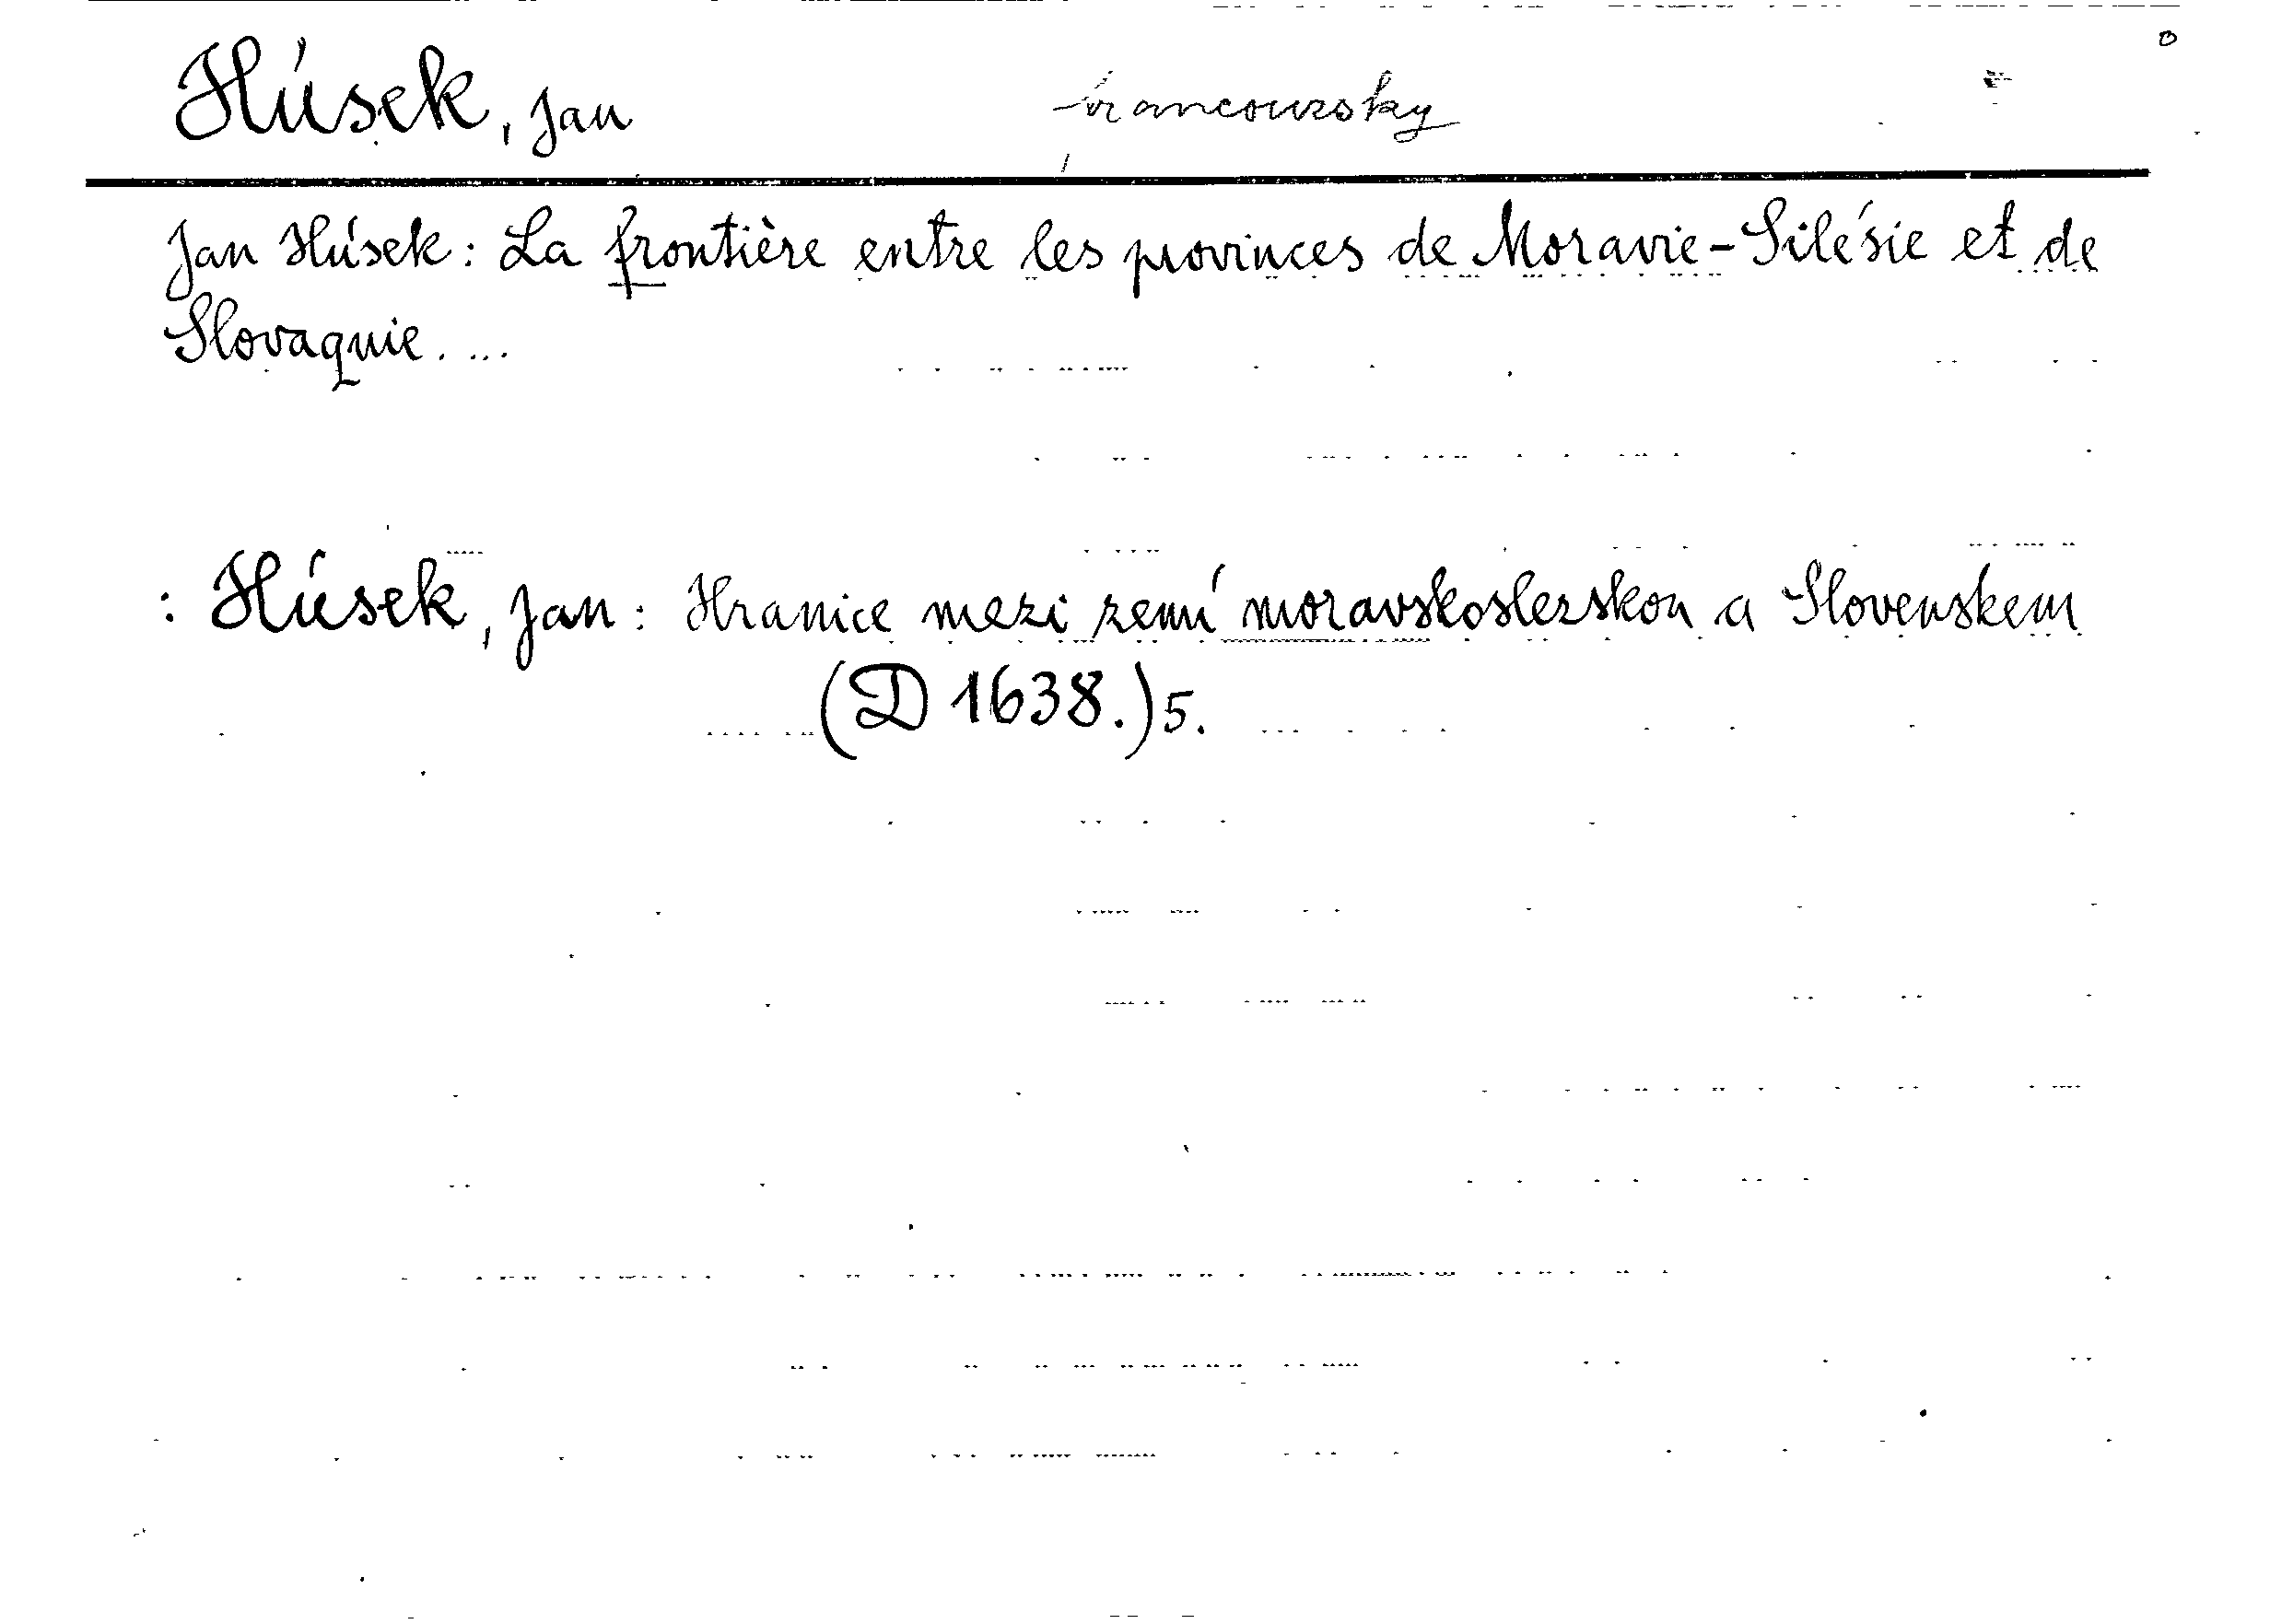 Húsek, Jan francouzsky
Jan Húsek: La frontière entre les provinces de Moravie-Silésie et de
Slovaquie. ...
: Húsek, Jan: Hranice mezi zemí moravskoslezskou a Slovenskem
(D 1638.) 5.